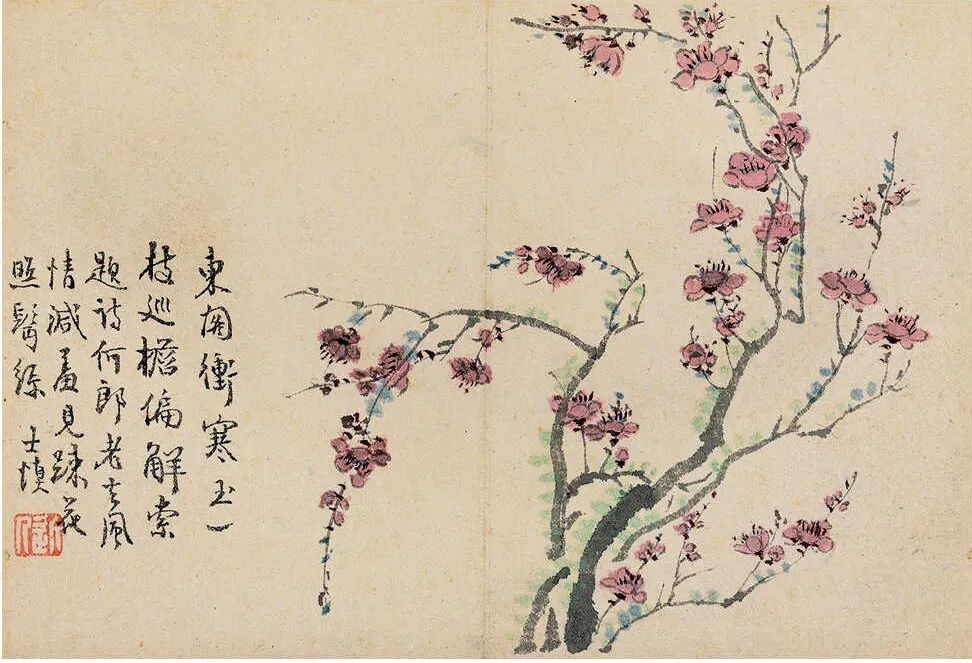 東閣衝寒玉一
枝巡檐偏解索
題詩何郎老去風
情減羞見疎花
照鬢絲 士慎